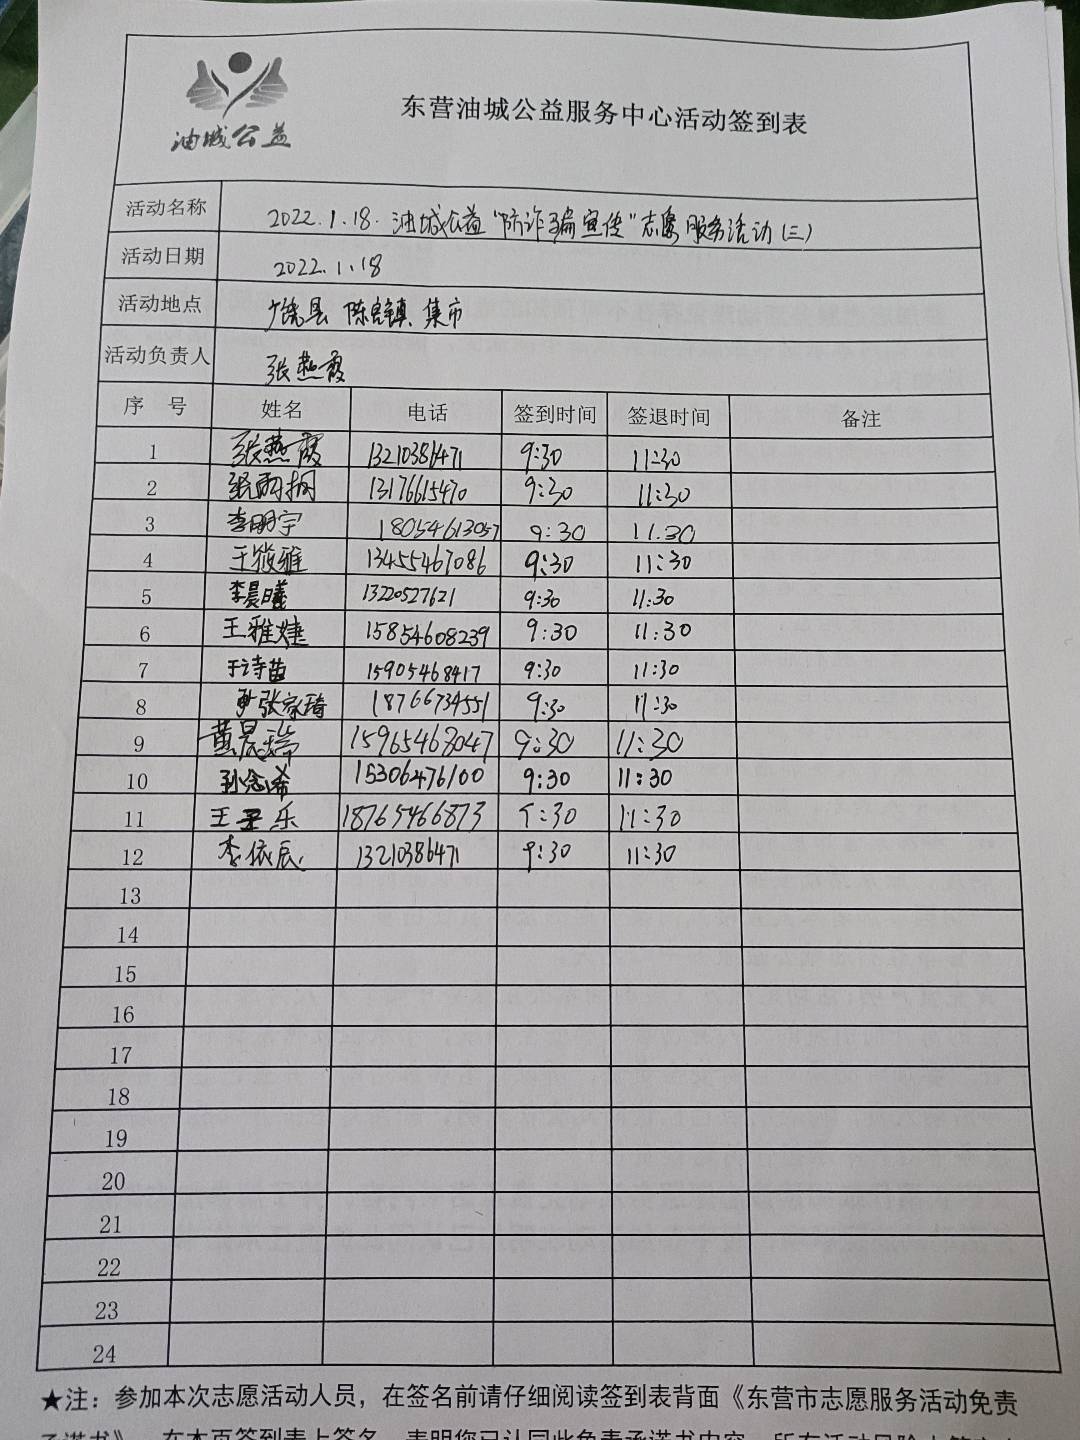 油城公益
东营油城公益服务中心活动签到表
活动名称 2022.1.18. 油城公益“防诈骗宣传”志愿服务活动(三)
活动日期 2022.1.18
活动地点 广饶县 陈官镇 集市
活动负责人 张燕霞
序 号 姓名 电话 签到时间 签退时间 备注
1 张燕霞 13210386471 9:30 11:30
2 13176615470 9:30 11:30
3 李明宇 18054613057 9:30 11.30
4 王筱雅 13455467086 9:30 11:30
5 李晨曦 13220527621 9:30 11:30
6 王雅婕 15854608239 9:30 11:30
7 于诗苗 15905468417 9:30 11:30
8 张家琦 18766734551 9:30 11:30
9 黄晨瑞 15965468047 9:30 11:30
10 孙念希 15306476100 9:30 11:30
11 王 乐 18765466873 :30 11:30
12 李依辰 13210386471 9:30 11:30
13
14
15
16
17
18
19
20
21
22
23
24
★注：参加本次志愿活动人员，在签名前请仔细阅读签到表背面《东营市志愿服务活动免责